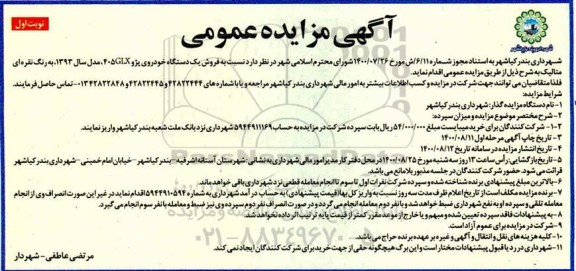 آگهی مزایده عمومی
نوبت اول
شهرداری بندر کیاشهر به استناد مجوز شماره ۶/۱۱/ش مورخ ۱۴۰۰/۷/۲۶ شورای محترم اسلامی شهر در نظر دارد نسبت به فروش یک دستگاه خودروی پژو ۴۰۵GLX، مدل سال ۱۳۹۳، به رنگ نقره ای
متالیک به شرح ذیل از طریق مزایده عمومی اقدام نماید.
لذا متقاضیان می توانند جهت شرکت در مزایده و کسب اطلاعات بیشتر به امور مالی شهرداری بندر کیاشهر مراجعه و یا با شماره های ۴۲۸۲۲۴۴۴ و ۴۲۸۲۲۴۴۵ و ۰۱۳۴۲۸۲۲۸۴۸ تماس حاصل فرمایند.
شرایط مزایده:
۱- نام دستگاه مزایده گذار: شهرداری بندر کیاشهر
۲- شرح مختصر موضوع مزایده و میزان سپرده:
۲-۱- شرکت کنندگان برای خرید میبایست مبلغ ۵۴/۰۰۰/۰۰۰ ریال بابت سپرده شرکت در مزایده به حساب ۵۹۴۴۹۱۱۱۶۹ شهرداری نزد بانک ملت شعبه بندر کیاشهر واریز نمایند.
۳- تاریخ چاپ آگهی مرحله اول ۱۴۰۰/۰۸/۱۱
۴- تاریخ انتشار مزایده در سامانه تاریخ ۱۴۰۰/۸/۱۲
۵- تاریخ بازگشایی: رأس ساعت ۱۳ روز سه شنبه مورخ ۱۴۰۰/۰۸/۲۵ در محل دفتر کار مدیر امور مالی شهرداری به نشانی: شهرستان آستانه اشرفیه- بندر کیاشهر- خیابان امام خمینی- شهرداری بندر کیاشهر
قرائت می شود. حضور شرکت کنندگان در جلسه مذبور بلامانع می باشد.
۶- بالاترین مبلغ پیشنهادی برنده شناخته شده و سپرده شرکت نفرات اول تا سوم تا انجام معامله قطعی نزد شهرداری باقی خواهد ماند.
۷- برنده مزایده مکلف است از تاریخ اعلام ظرف مدت سه روز نسبت به واریز کل بهاء (قیمت پیشنهادی) به حساب درآمد شهرداری به شماره ۵۹۴۴۹۱۰۵۹۴ اقدام نماید در غیر این صورت انصراف وی از انجام
معامله تلقی و سپرده او به نفع شهرداری ضبط خواهد شد و با نفر دوم معامله انجام می گردد و در صورت انصراف نفر دوم سپرده وی نیز ضبط و معامله با نفر سوم انجام می گیرد.
۸- به پیشنهادات فاقد سپرده تعیین شده و مبهم و یا خارج از موعد مقرر کمتر از قیمت پایه ترتیب اثر داده نخواهد شد.
۹- شرکت در مزایده برای عموم آزاد است.
۱۰- کلیه هزینه های نقل و انتقال و آگهی و غیره بر عهده برنده حراج می باشد.
۱۱- شهرداری در رد یا قبول پیشنهادات مختار است و این برگ هیچگونه حقی از جهت خرید برای شرکت کنندگان ایجاد نمی کند.
مرتضی عاطفی- شهردار
۰۲۱-۸۸۳۴۹۶۷۰